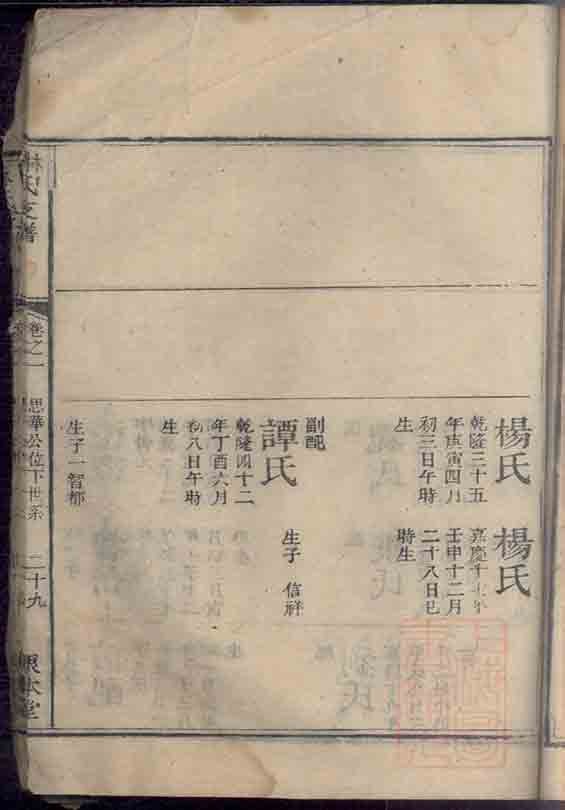 楊氏
乾隆三十五
年庚寅四月
初三日午時
生
楊氏
嘉慶十七年
壬申十二月
二十八日巳
時生
副配
譚氏
乾隆四十二
年丁酉六月
初八日午時
生
生子 信祥
生子一智都
林氏支譜
卷之二
思華公位下世系
二十九
根本堂